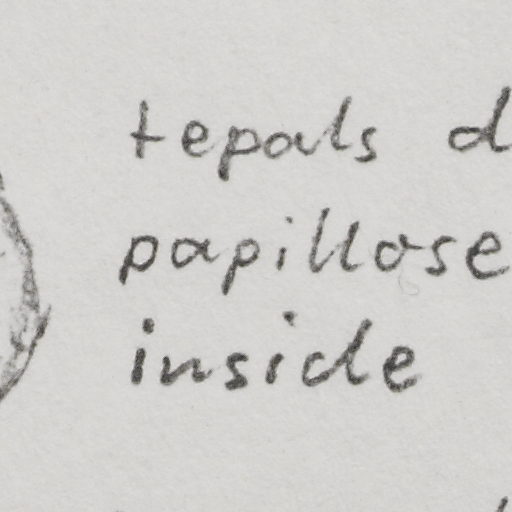 tepals d
papillose
inside